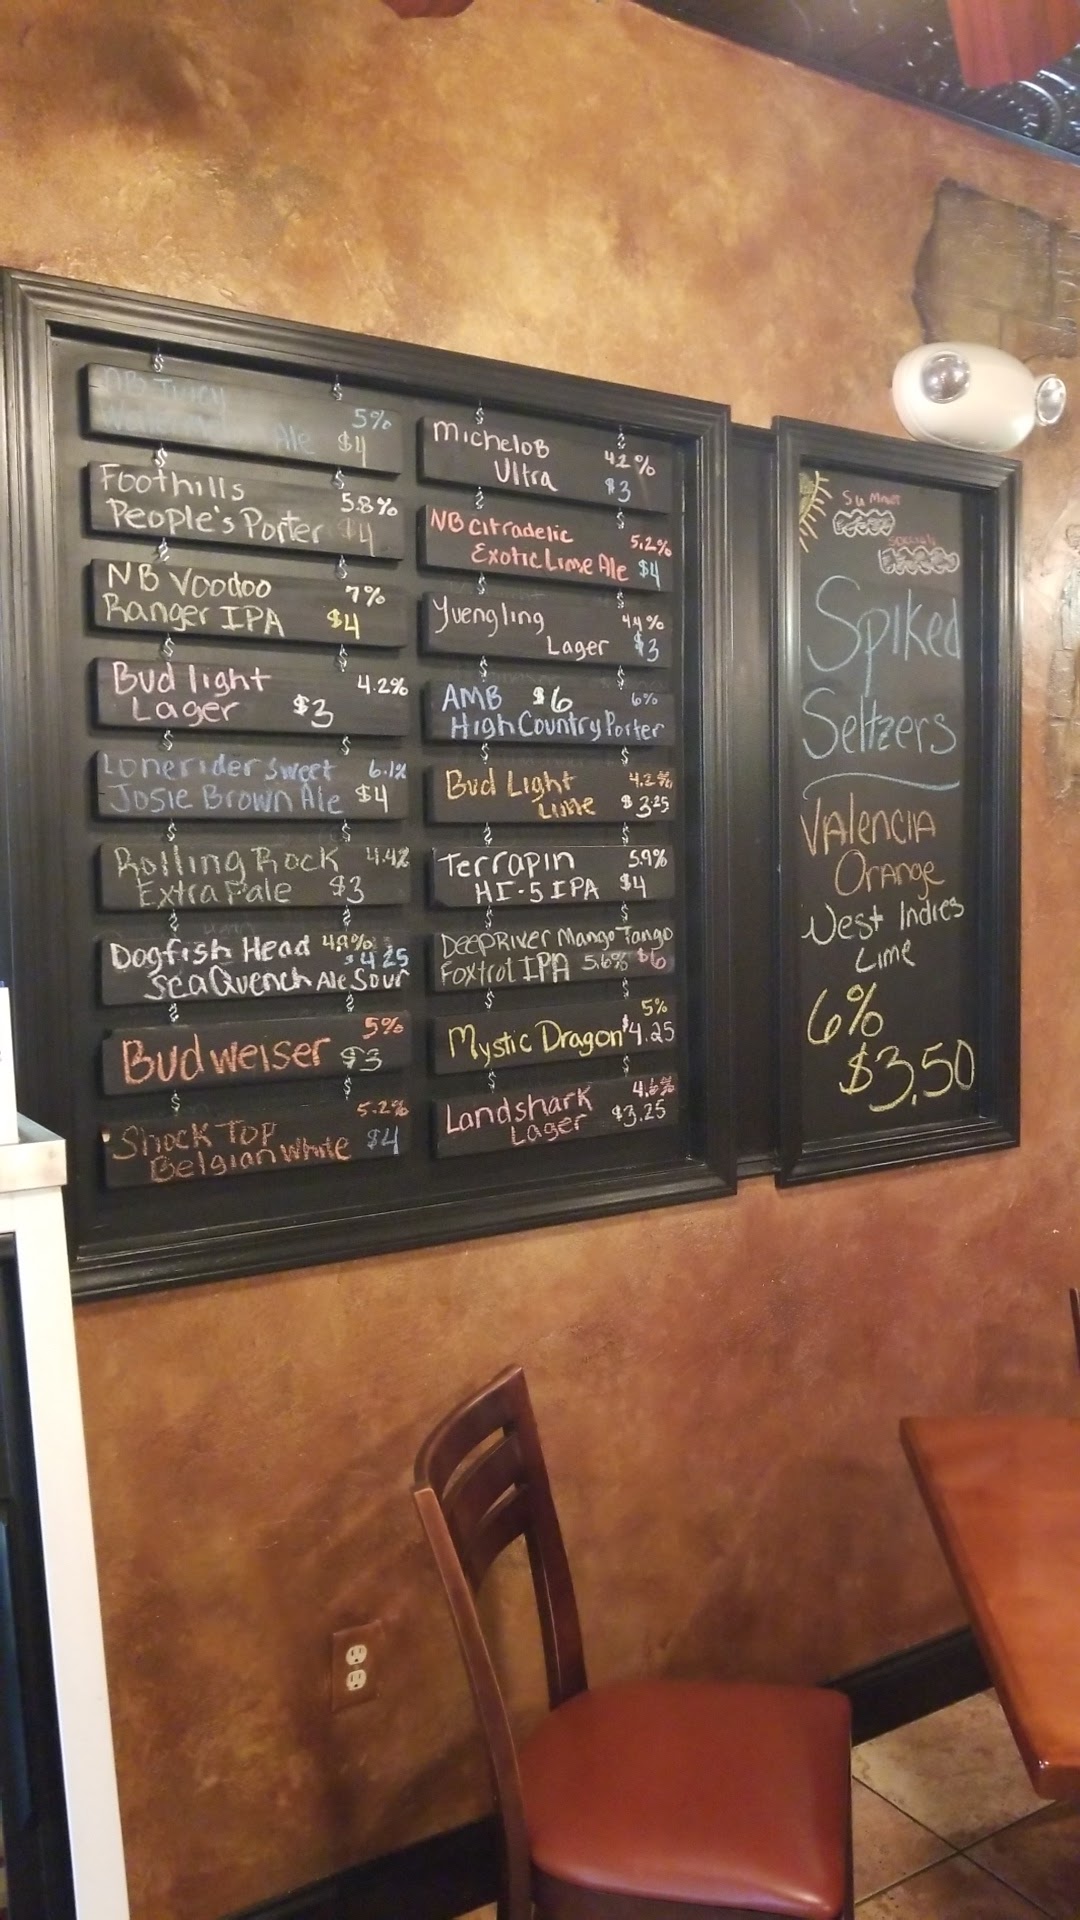 NB Juicy
Watermelon Ale 5% $4
Foothills
People's Porter 5.8% $4
NB Voodoo
Ranger IPA 7% $4
Bud light
Lager $3 4.2%
Lonerider Sweet 6.1%
Josie Brown Ale $4
Rolling Rock 4.4%
Extra Pale $3
Dogfish Head 4.9% $4.25
SeaQuench Ale Sour
5%
Budweiser $3
5.2%
Shock Top $4
Belgian White
Michelob
Ultra 4.2% $3
NB Citradelic 5.2%
Exotic Lime Ale $4
Yuengling 4.4%
Lager $3
AMB $6 6%
High Country Porter
Bud Light 4.2%
Lime $3.25
Terrapin 5.9%
HI-5 IPA $4
Deep River Mango Tango
Foxtrot IPA 5.6% $6
5%
Mystic Dragon $4.25
Landshark 4.6%
Lager $3.25
Summer
Specials
Spiked
Seltzers
Valencia
Orange
West Indies
Lime
6%
$3.50